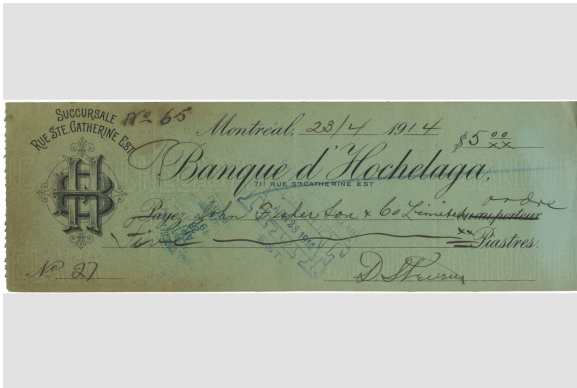 SUCCURSALE
RUE STE. CATHERINE EST
No 65
Montréal, 23/4 1914
$5 00/xx
Banque d'Hochelaga,
711 RUE STE CATHERINE EST
ordre
Payez John Fisher Son & Co Limited ou au porteur
Five xx Piastres.
No 27